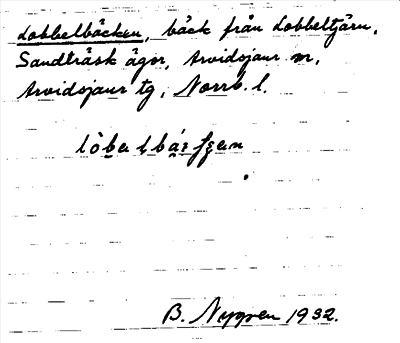 Lobbelbäcken, bäck från Lobbeltjärn,
Sandträsk ägor, Arvidsjaur sn,
Arvidsjaur tg, Norrb. l.
B. Nygren 1932.